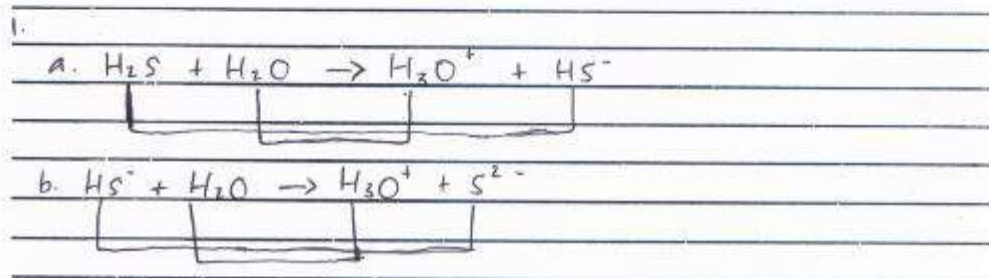 1.
a. H₂S + H₂O → H₃O⁺ + HS⁻
b. HS⁻ + H₂O → H₃O⁺ + S²⁻